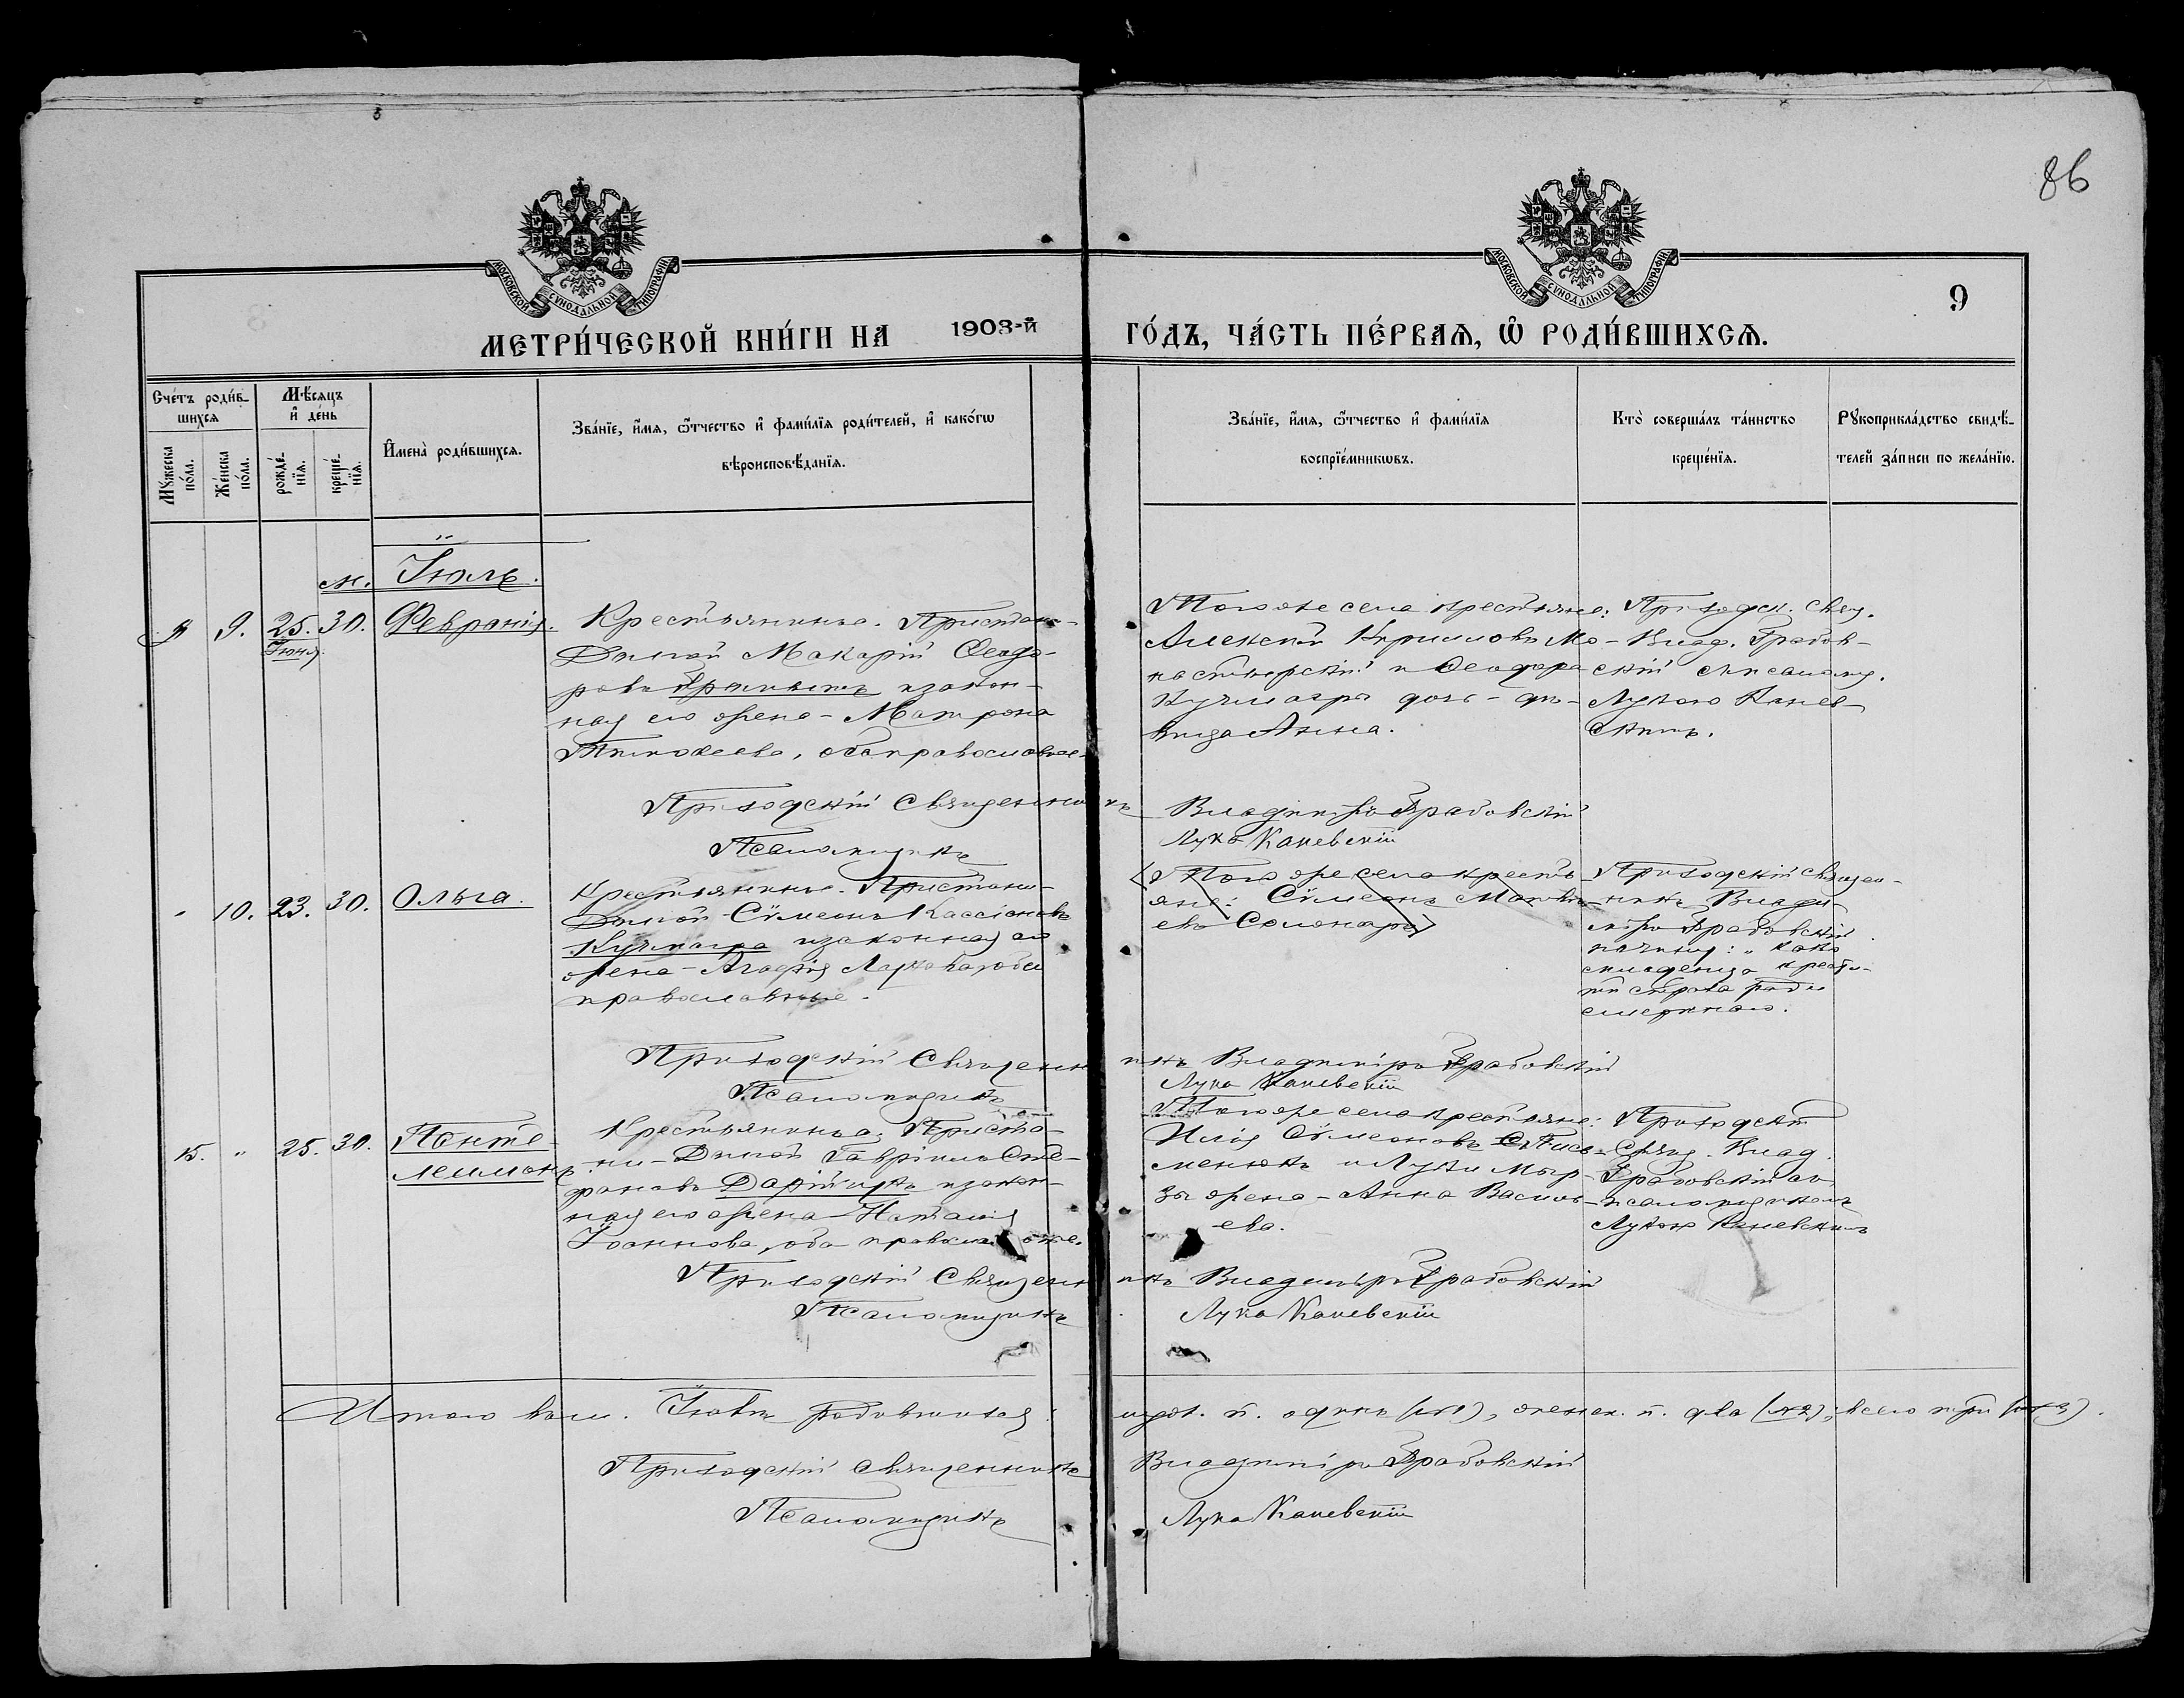 86
МОСКОВСКОЙ СѴНОДАЛЬНОЙ ТИПОГРАФІИ
МОСКОВСКОЙ СѴНОДАЛЬНОЙ ТИПОГРАФІИ
9
МЕТРИ́ЧЕСКОЙ КНИ́ГИ НА 1903-й ГО́ДЪ, ЧА́СТЬ ПЕ́РВАѦ, Ѿ РОДИ́ВШИХСѦ.
Сче́тъ роди́в-
шихсѧ
Мѣ́сѧцъ
и҆ де́нь
Мꙋ́жеска
по́ла.
Же́нска
по́ла.
рожде́-
нїѧ.
креще́-
нїѧ.
И҆мена̀ роди́вшихсѧ.
Зва́нїе, и҆́мѧ, ѻ҆́тчество и҆ фами́лїѧ роди́телей, и҆ како́гѡ
вѣроисповѣ́данїѧ.
Зва́нїе, и҆́мѧ, ѻ҆́тчество и҆ фами́лїѧ
воспрїе́мникѡвъ.
Кто̀ соверша́лъ та́инство
креще́нїѧ.
Рꙋкоприкла́дство свидѣ́-
телей за́писи по жела́нїю.
м. Іюль.
9. 25. 30. Февронія.
Іюня
Крестьянинъ с. Пристани-
Дымой Макарій Ѳеодо-
ровъ и закон-
ная его жена - Матрона
Тимоѳеева, оба православные.
Того же села крестьяне:
Алексѣй Кирилловъ Мо-
настырскій и Ѳеодора
Кучмагры дочь - дѣ-
вица Анна.
Приходск. Свящ.
Влад. Грабов-
скій съ псаломщ.
Лукою Канев-
скимъ.
Приходскій Священникъ Владиміръ Грабовскій
Псаломщикъ Лука Каневскій
" 10. 23. 30. Ольга.
Крестьянинъ с. Пристани-
Дымой Сѵмеонъ Кассіановъ
Кучмагра и законная его
жена - Агафія оба
православные.
Того же села кресть-
яне: Сѵмеонъ
евъ
Приходскій Священ-
никъ Влади-
міръ Грабовскій
младенца крести-
страха ради
смертнаго.
Приходскій Священникъ Владиміръ Грабовскій
Псаломщикъ Лука Каневскій
15. " 25. 30. Панте-
леимонъ
Крестьянинъ с. Приста-
ни-Дымой Гавріилъ Сте-
фановъ и закон-
ная его жена Наталія
Іоаннова, оба православные.
Того же села крестьяне:
Илія Сѵмеоновъ
и Луки
жена - Анна Василь-
ева.
Приходскій
Свящ. Влад.
Грабовскій со
псаломщикомъ
Лукою Каневскимъ
Приходскій Священникъ Владиміръ Грабовскій
Псаломщикъ Лука Каневскій
Итого въ м. Іюлѣ родившихся: муж. п. одинъ (№1), женск. п. два (№2), всего три (№3).
Приходскій Священникъ Владиміръ Грабовскій
Псаломщикъ Лука Каневскій